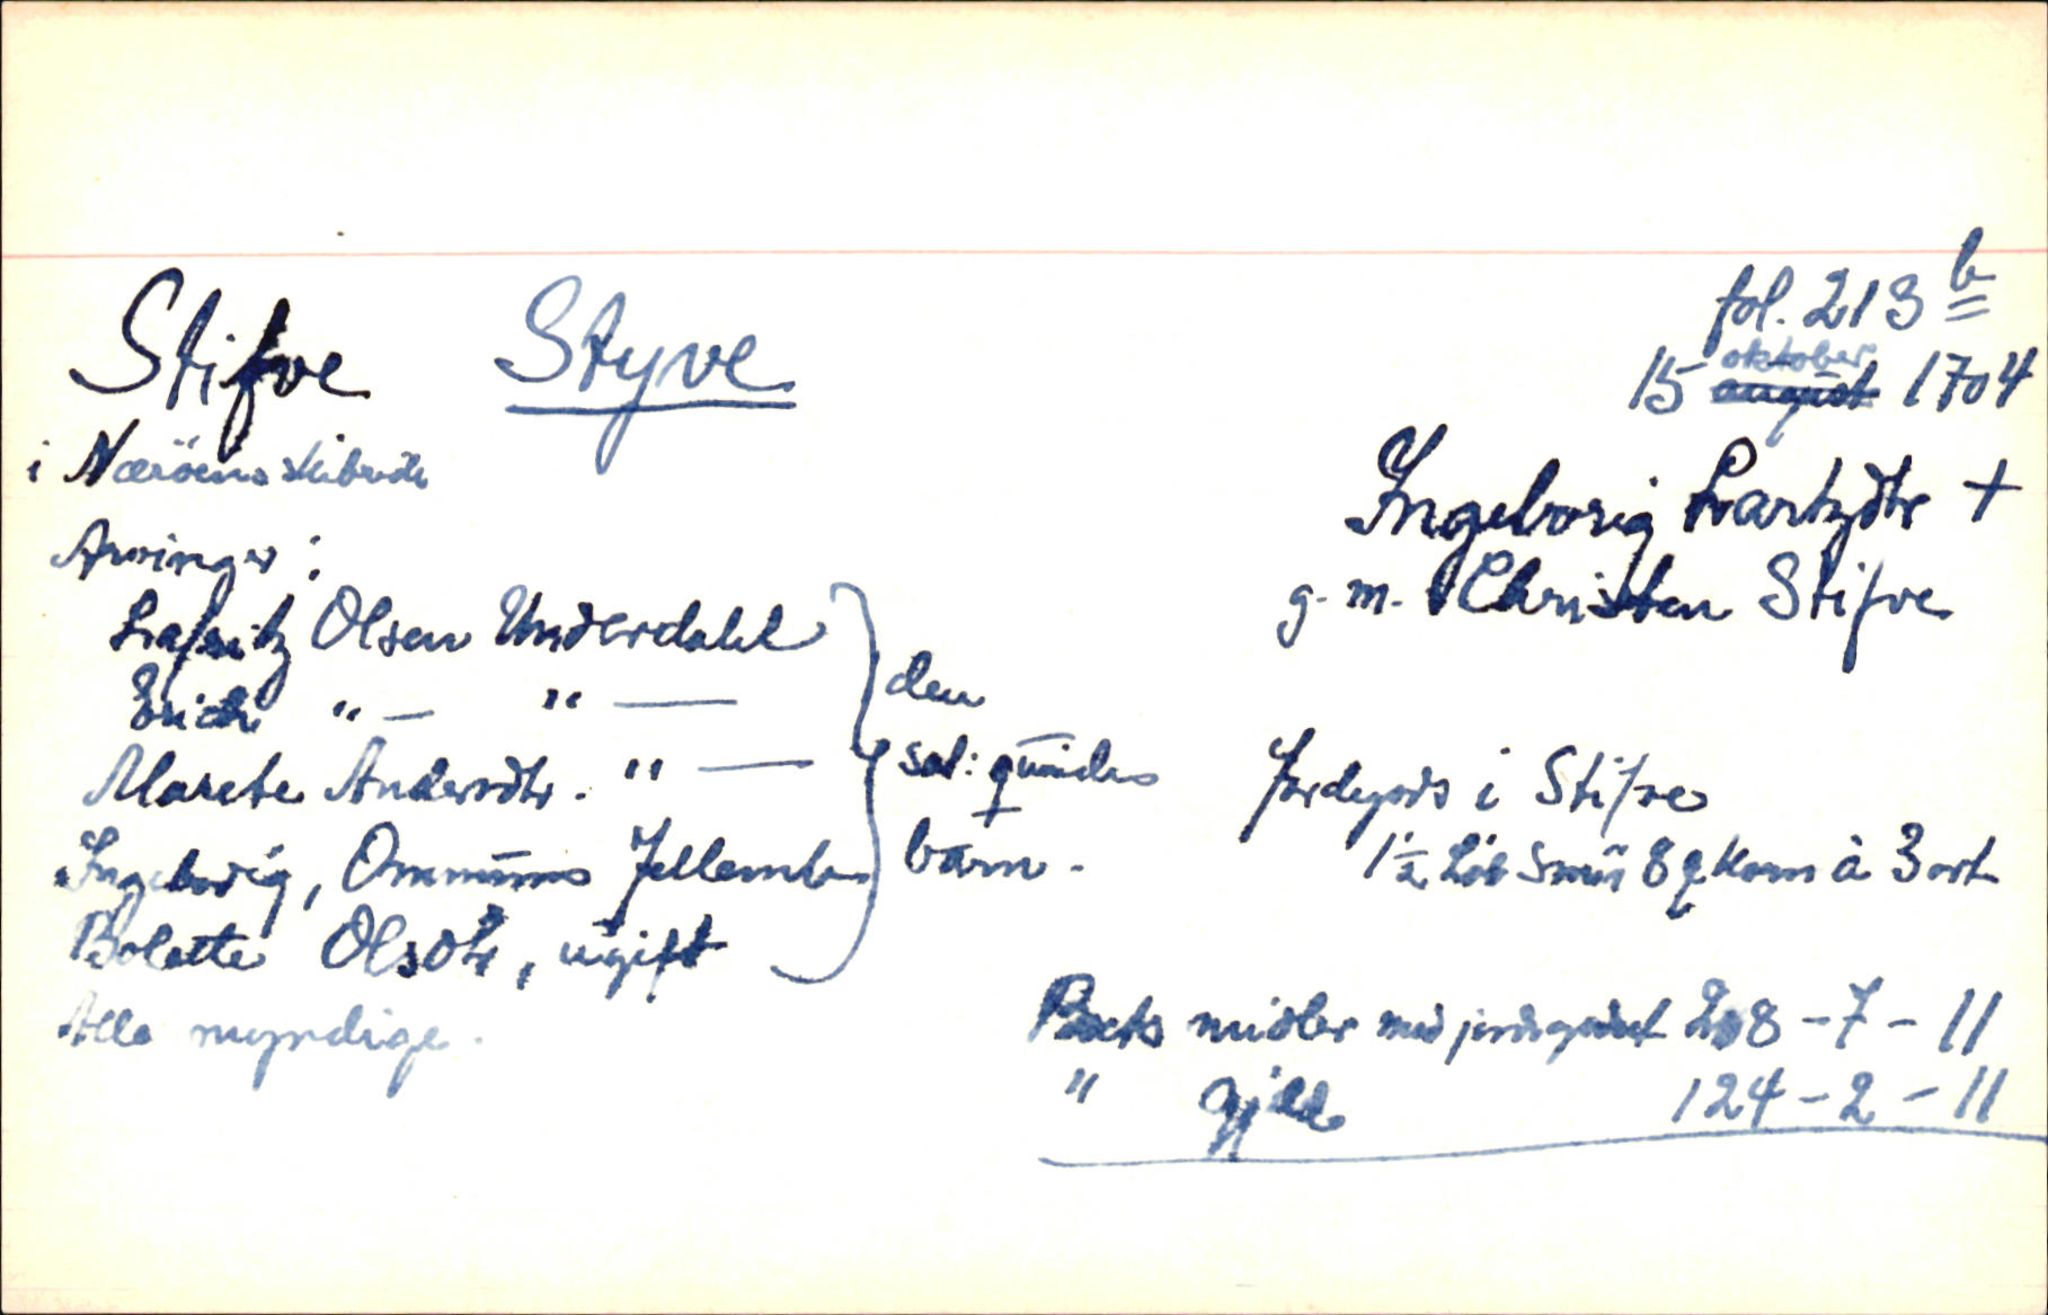 Stifve Styve
fol. 213 b
15 oktober august 1704
i Næröens skibrede
Ingeborig Lartzdtr +
g. m. Christen Stifve
Arvinger:
Lafritz Olsen Underdahl
Erich "— "—
Marete Andersdtr. "—
Ingeborig, Ommuns Jellemb
Bolette Olsdtr, ugift
Alle myndige.
den
sal: quindes
barn.
Jordegods i Stifve
1½ Löb Smör 8 Korn à 3 ort
Boets midler med jordegodset 208-7-11
" gjeld 124-2-11